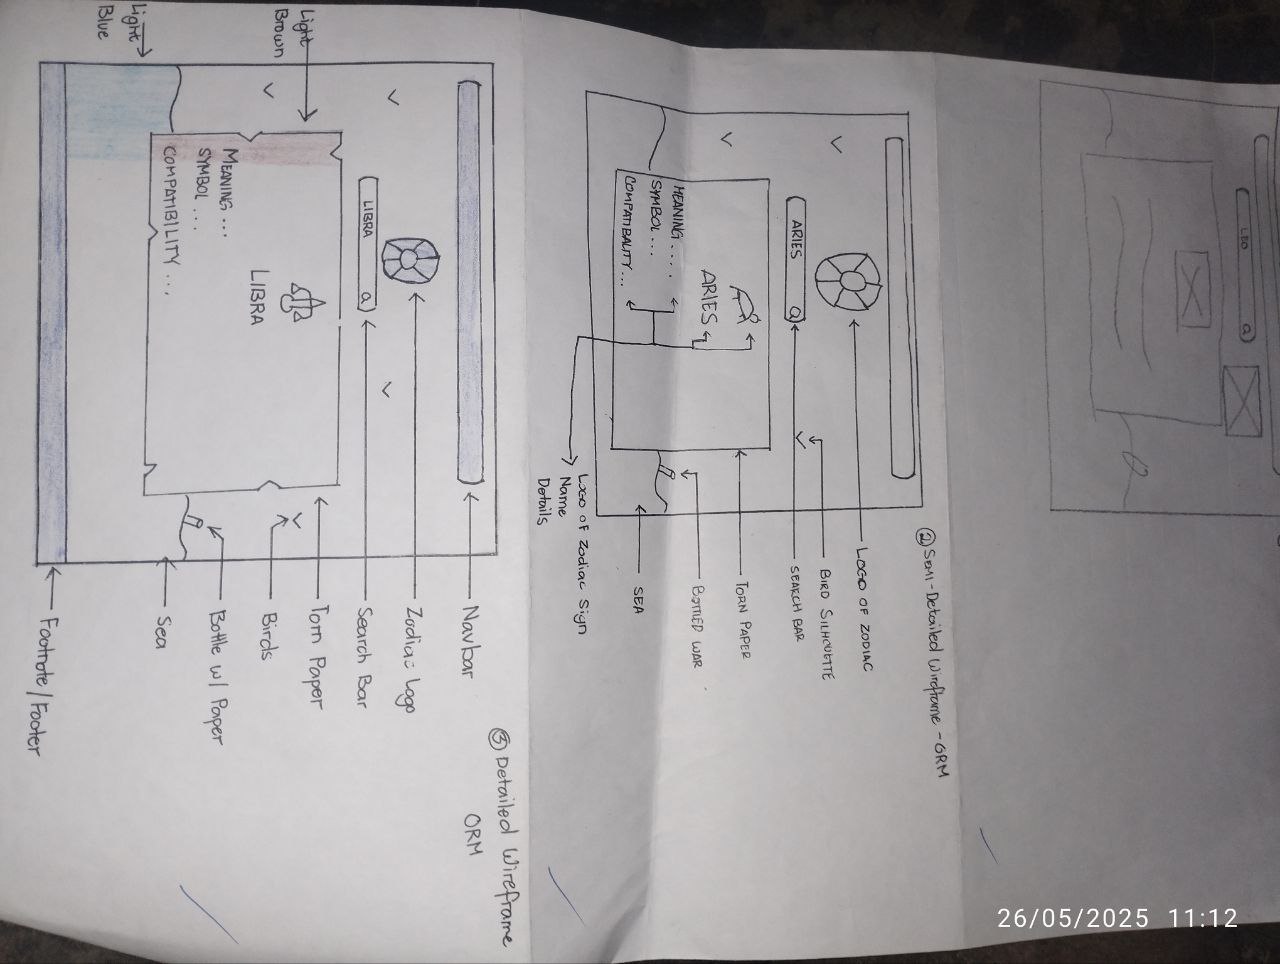 LEO
26/05/2025 11:12
② SEMI-Detailed Wireframe - GRM
LOGO OF ZODIAC
BIRD SILHOUETTE
ARIES
SEARCH BAR
TORN PAPER
ARIES
BOTTLED WAR
MEANING ....
SYMBOL ...
SEA
COMPATIBALITY ...
LOGO OF Zodiac Sign
Name
Details
③ Detailed Wireframe
ORM
Navbar
Zodiac Logo
LIBRA
Search Bar
Torn Paper
Light
Brown
Birds
LIBRA
MEANING ...
Bottle w/ Paper
SYMBOL ...
COMPATIBILITY ...
Sea
Light
Blue
Footnote/Footer